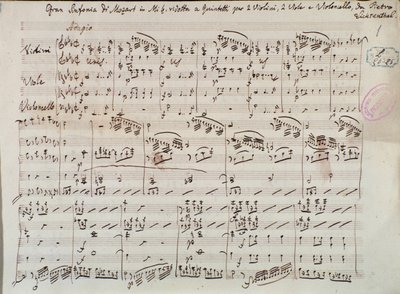 Gran Sinfonia di Mozart in Mi b. ridotta a Quintetti per 2 Violini, 2 Viole e Violoncello, da Pietro
Lichtenthal.
Adagio
Violini
unis.
Viole
Violoncello